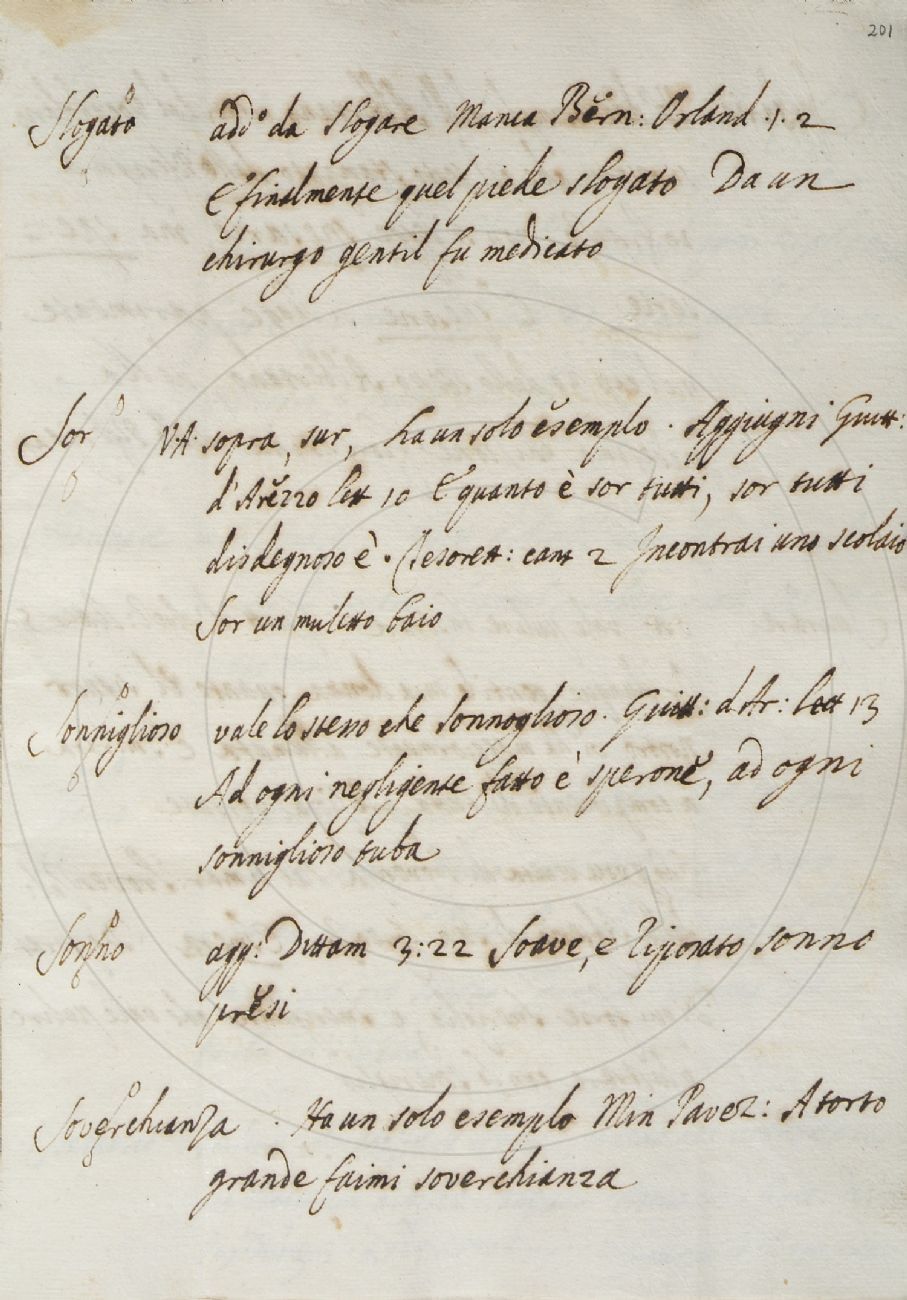 201
Slogato add.º da slogare Manca Bern: Orland. 1. 2
E finalmente quel piede slogato Da un
chirurgo gentil fu medicato
Sor VA: sopra, sur, ha un solo esemplo. Aggiugni Guitt:
d'Arezzo lett 10 E quanto è sor tutti, sor tutti
disdegnoso è. Tesorett: cant 2 Incontrai uno scolaio
sor un muletto baio
Sonniglioso vale lo stesso che sonnoglioso. Guitt: d Ar: lett 13
Ad ogni negligente fatto è sperone, ad ogni
sonniglioso tuba
Sonno agg: Dittam 3:22 Soave, e riposato sonno
presi
Soverchianza. Ha un solo esemplo Min Pavez: A torto
grande faimi soverchianza